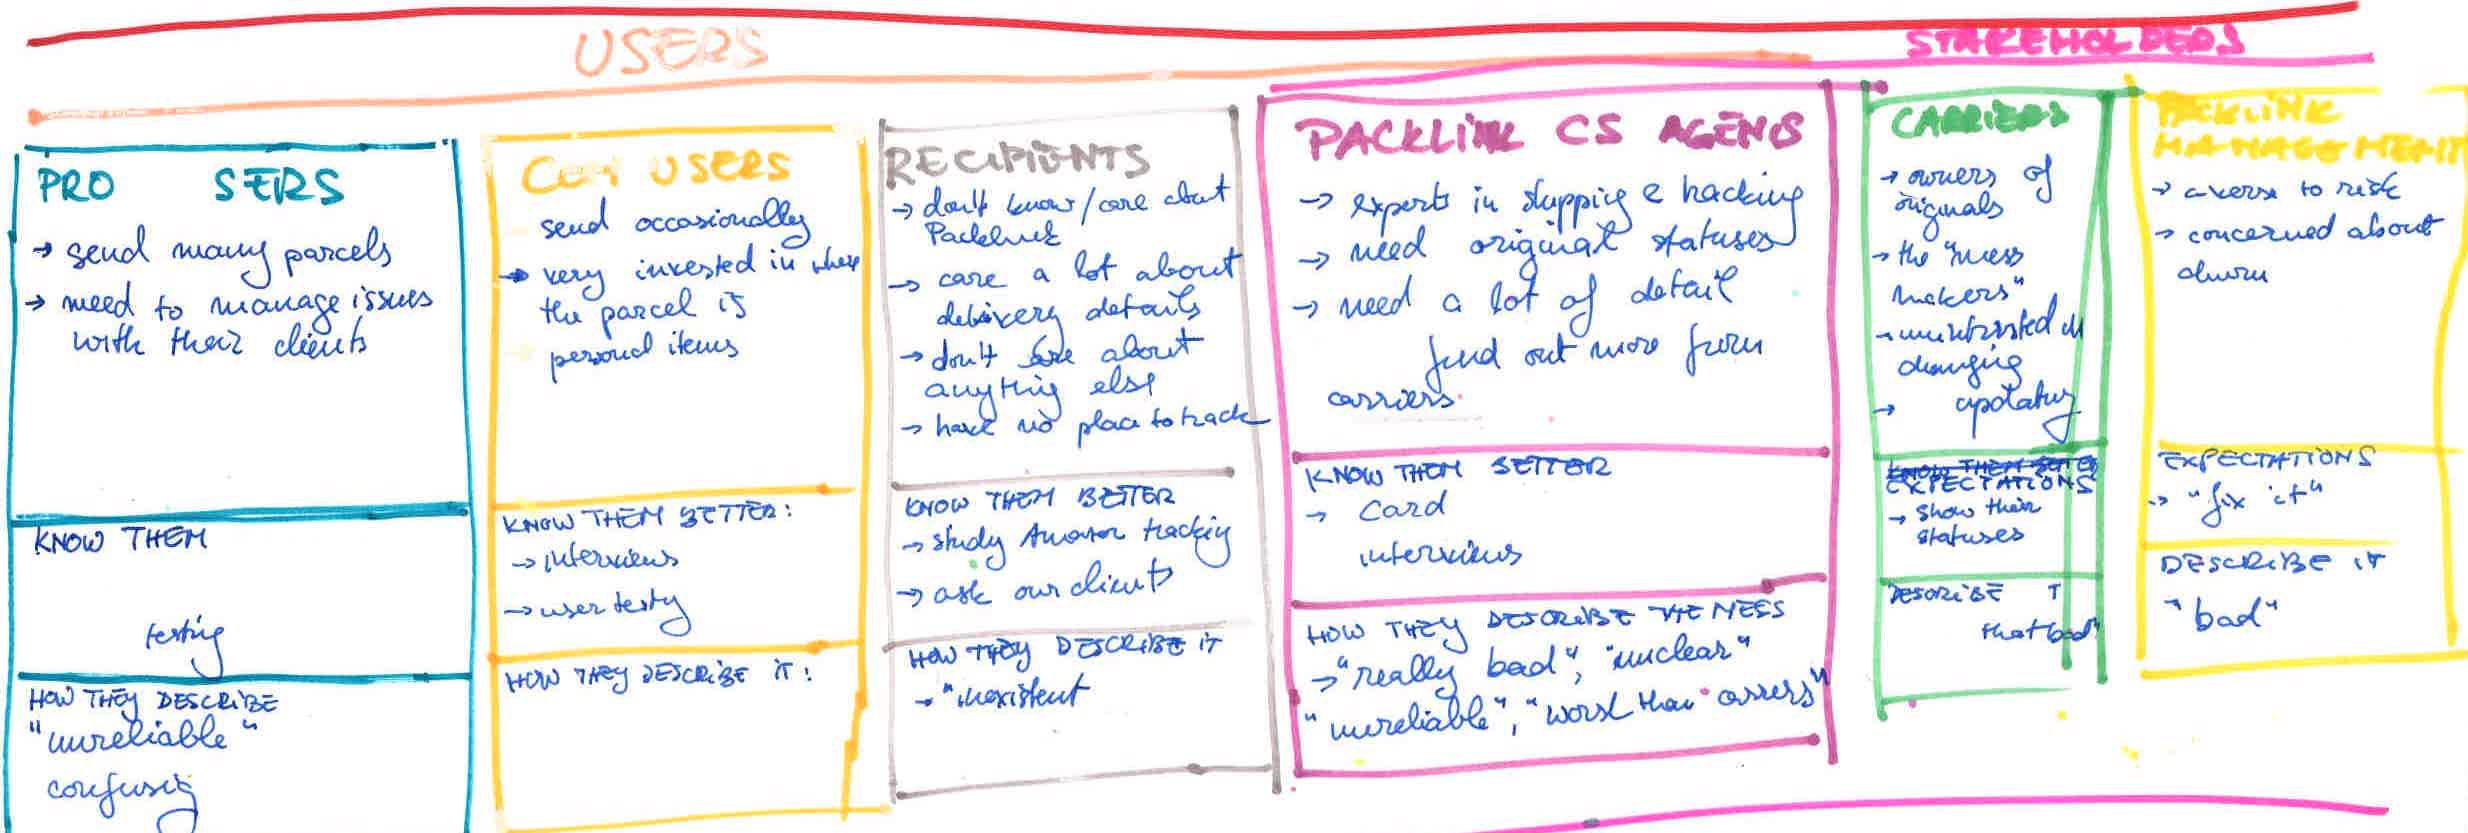 USERS
STAKEHOLDERS
PRO SERS
→ send many parcels
→ need to manage issues
with their clients
KNOW THEM
testing
HOW THEY DESCRIBE
"unreliable"
confusing
USERS
send occasionally
→ very invested in where
the parcel is
personal items
KNOW THEM BETTER:
→ interviews
→ user testg
HOW THEY DESCRIBE IT:
RECIPIENTS
→ don't know/care about
Packlink
→ care a lot about
delivery details
→ don't care about
anything else
→ have no place to track
KNOW THEM BETTER
→ study Amazon tracking
→ ask our clients
HOW THEY DESCRIBE IT
→ "inexistent
PACKLINK CS AGENTS
→ experts in shipping & tracking
→ need original statuses
→ need a lot of detail
find out more from
carriers
KNOW THEM BETTER
→ Card
interviews
HOW THEY DESCRIBE THE MESS
→ "really bad", "unclear"
"unreliable", "worst than carrers"
CARRIERS
→ owners of
originals
→ the "mess
makers"
→ uninterested in
changing
→ updating
KNOW THEM BETTER
EXPECTATIONS
→ show their
statuses
DESCRIBE T
that bad"
PACKLINK
MANAGEMENT
→ averse to risk
→ concerned about
churn
EXPECTATIONS
→ "fix it"
DESCRIBE IT
"bad"